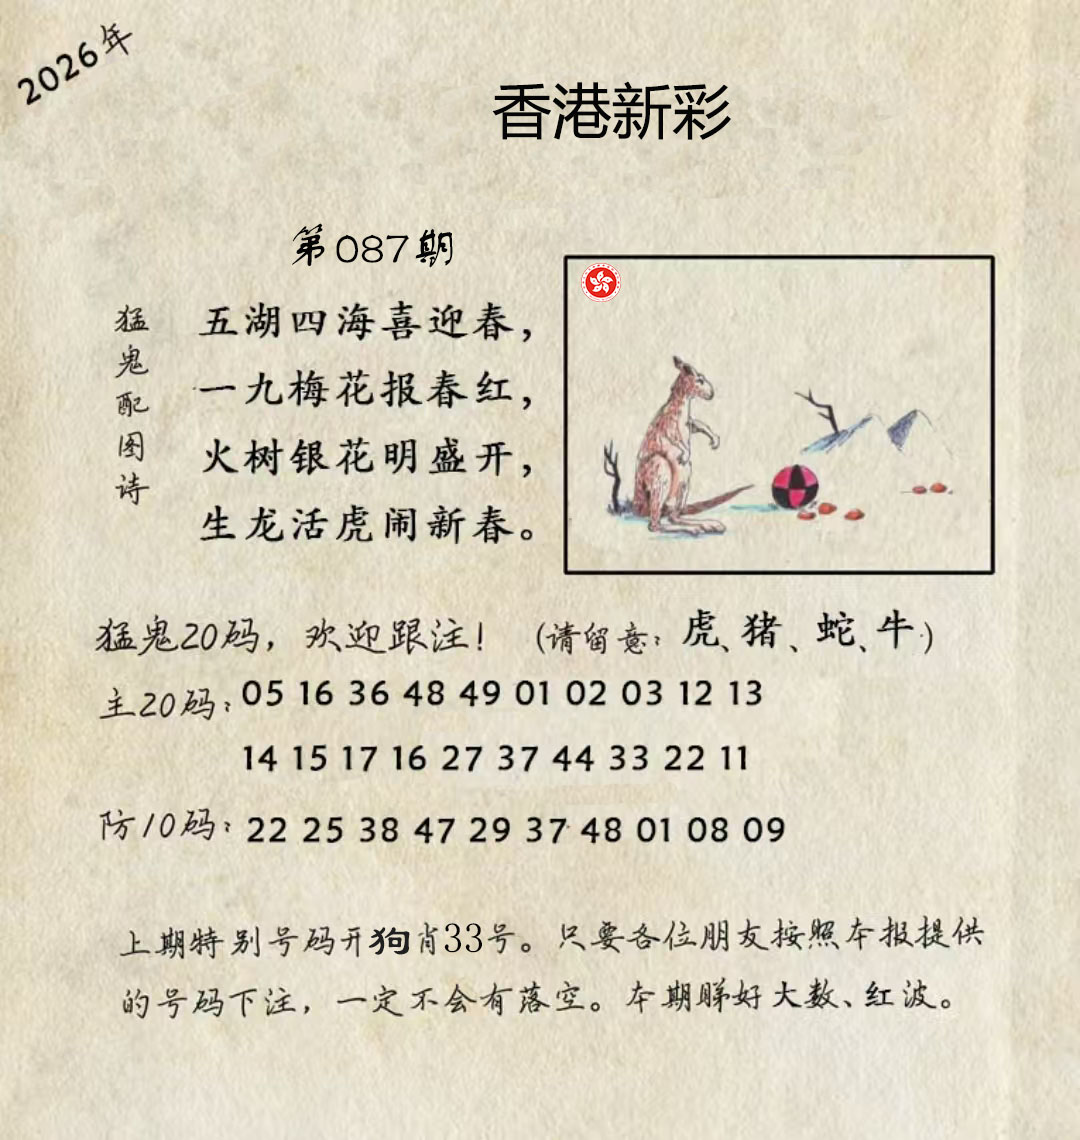 2026年
香港新彩
第087期
猛鬼配图诗
五湖四海喜迎春，
一九梅花报春红，
火树银花明盛开，
生龙活虎闹新春。
猛鬼20码，欢迎跟注！（请留意：虎、猪、蛇、牛）
主20码：05 16 36 48 49 01 02 03 12 13
14 15 17 16 27 37 44 33 22 11
防10码：22 25 38 47 29 37 48 01 08 09
上期特别号码开狗肖33号。只要各位朋友按照本报提供
的号码下注，一定不会有落空。本期睇好大数、红波。